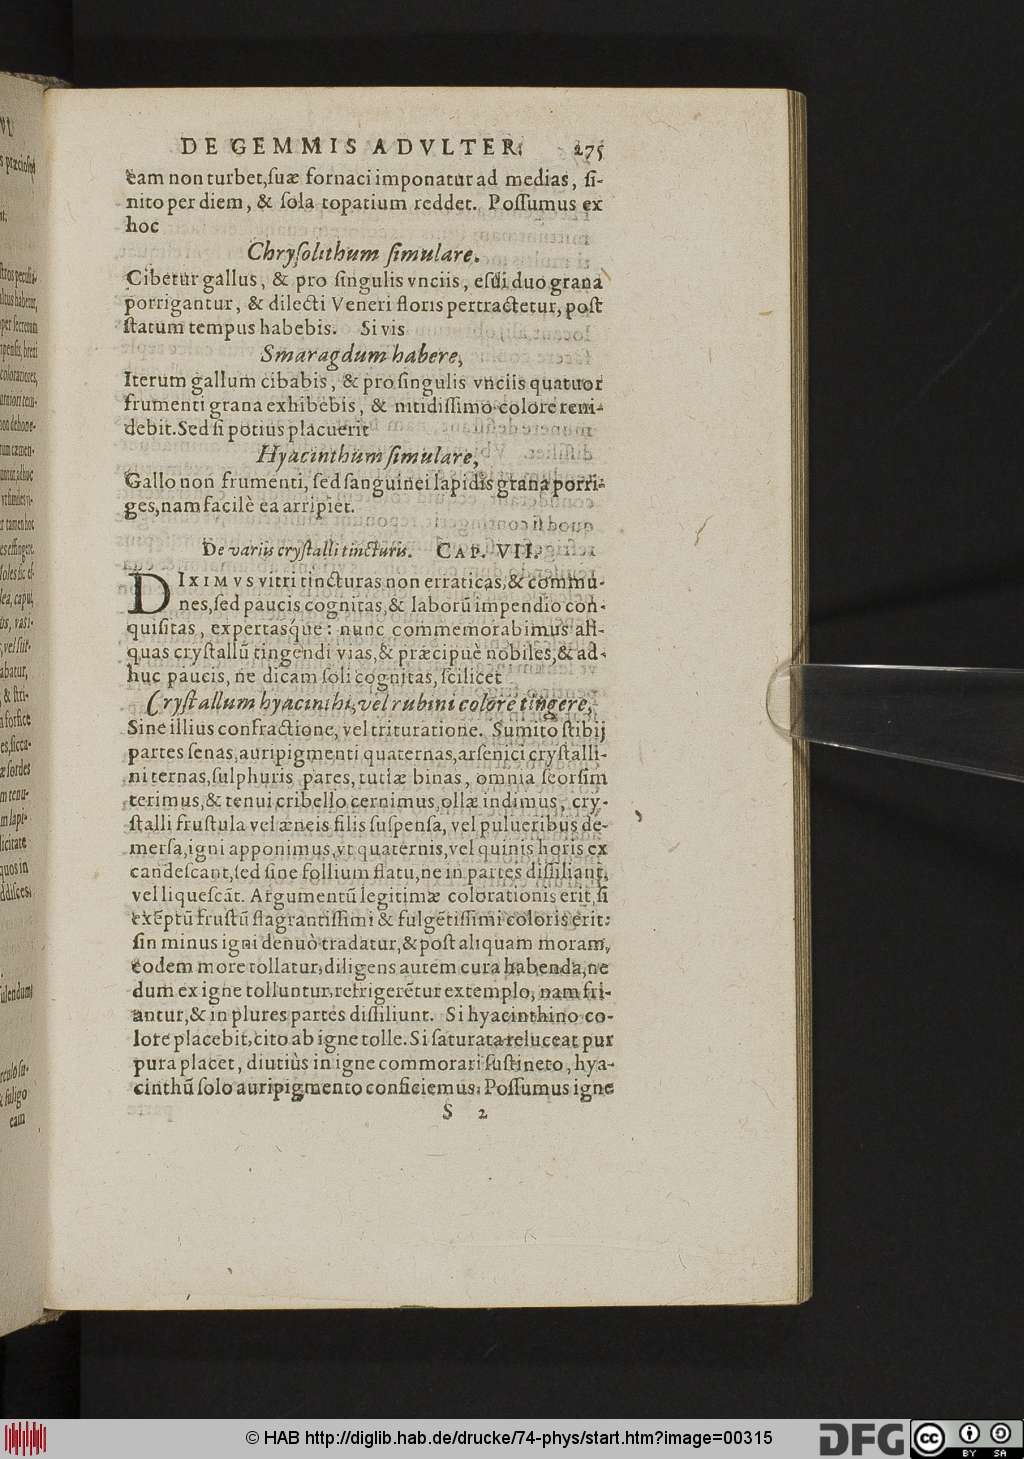 DE GEMMIS ADVLTER. 275
eam non turbet, suæ fornaci imponatur ad medias, si-
nito per diem, & sola topatium reddet. Possumus ex
hoc
Chrysolithum simulare.
Cibetur gallus, & pro singulis vnciis, esui duo grana
porrigantur, & dilecti Veneri floris pertractetur, post
statum tempus habebis. Si vis
Smaragdum habere,
Iterum gallum cibabis, & pro singulis vnciis quatuor
frumenti grana exhibebis, & nitidissimo colore reni-
debit. Sed si potius placuerit
Hyacinthum simulare,
Gallo non frumenti, sed sanguinei lapidis grana porri-
ges, nam facilè ea arripiet.
De variis crystalli tincturis. CAP. VII.
DIXIMVS vitri tincturas non erraticas, & commu-
nes, sed paucis cognitas, & laborū impendio con-
quisitas, expertasq́ue: nunc commemorabimus ali-
quas crystallū tingendi vias, & præcipuè nobiles, & ad-
huc paucis, ne dicam soli cognitas, scilicet
Crystallum hyacinthi, vel rubini colore tingere,
Sine illius confractione, vel trituratione. Sumito stibij
partes senas, auripigmenti quaternas, arsenici crystalli-
ni ternas, sulphuris pares, tutiæ binas, omnia seorsim
terimus, & tenui cribello cernimus, ollæ indimus, cry-
stalli frustula vel æneis filis suspensa, vel pulueribus de-
mersa, igni apponimus, vt quaternis, vel quinis horis ex
candescant, sed sine follium flatu, ne in partes dissiliant,
vel liquescāt. Argumentū legitimæ colorationis erit, si
exēptū frustū flagrantissimi & fulgētissimi coloris erit:
sin minus igni denuò tradatur, & post aliquam moram,
eodem more tollatur, diligens autem cura habenda, ne
dum ex igne tolluntur, refrigerētur extemplo, nam fri-
antur, & in plures partes dissiliunt. Si hyacinthino co-
lore placebit, cito ab igne tolle. Si saturata reluceat pur
pura placet, diutiùs in igne commorari sustineto, hya-
cinthū solo auripigmento conficiemus. Possumus igne
S 2
© HAB http://diglib.hab.de/drucke/74-phys/start.htm?image=00315
DFG
cc
BY SA